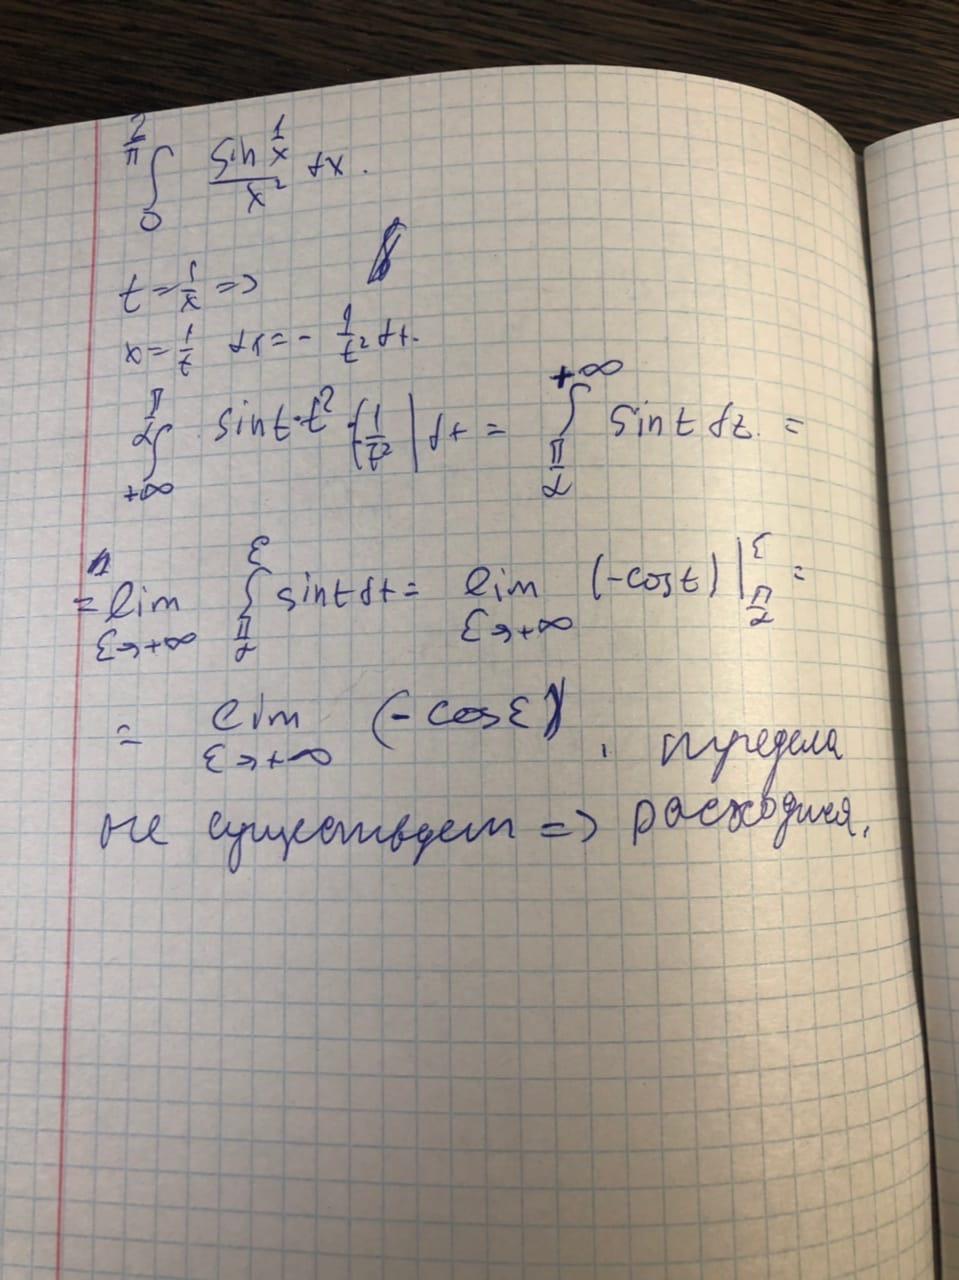 ∫_0^{2/π} sin(1/x)/x² dx.
t = 1/x =>
x = 1/t dx = - 1/t² dt.
∫_{+∞}^{π/2} sin t · t² (-1/t²) dt = ∫_{π/2}^{+∞} sin t dt. =
= lim_{ε→+∞} ∫_{π/2}^{ε} sin t dt = lim_{ε→+∞} (-cos t) |_{π/2}^{ε} =
= lim_{ε→+∞} (- cos ε) , предела
не существует => расходится.